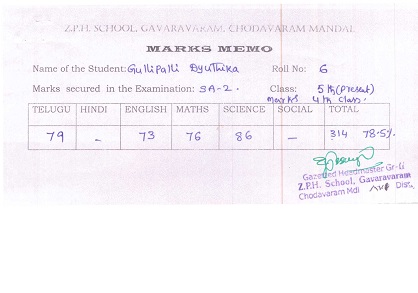 Z.P.H. SCHOOL, GAVARAVARAM, CHODAVARAM MANDAL
MARKS MEMO
Name of the Student: Gullipalli Dyuthika Roll No: 6
Marks secured in the Examination: SA-2. Class: 5th (present)
marks 4th class.
TELUGU HINDI ENGLISH MATHS SCIENCE SOCIAL TOTAL
79 - 73 76 86 - 314 78.5%
Gazetted Headmaster Gr-II
Z.P.H. School, Gavaravaram
Chodavaram Mdl Dist,